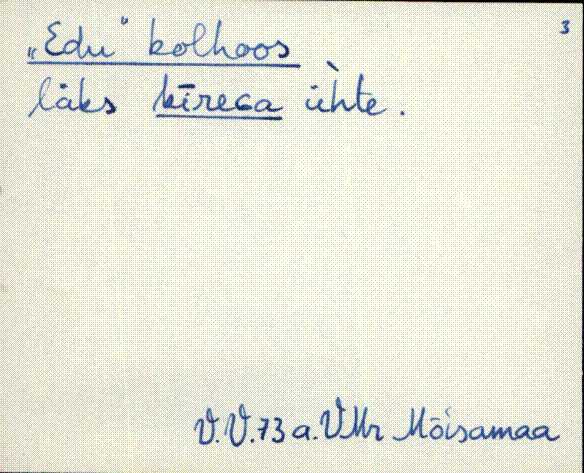 3
„Edu“ kolhoos
läks kīreca ǜhte.
V.V.73 a. VMr Mõisamaa